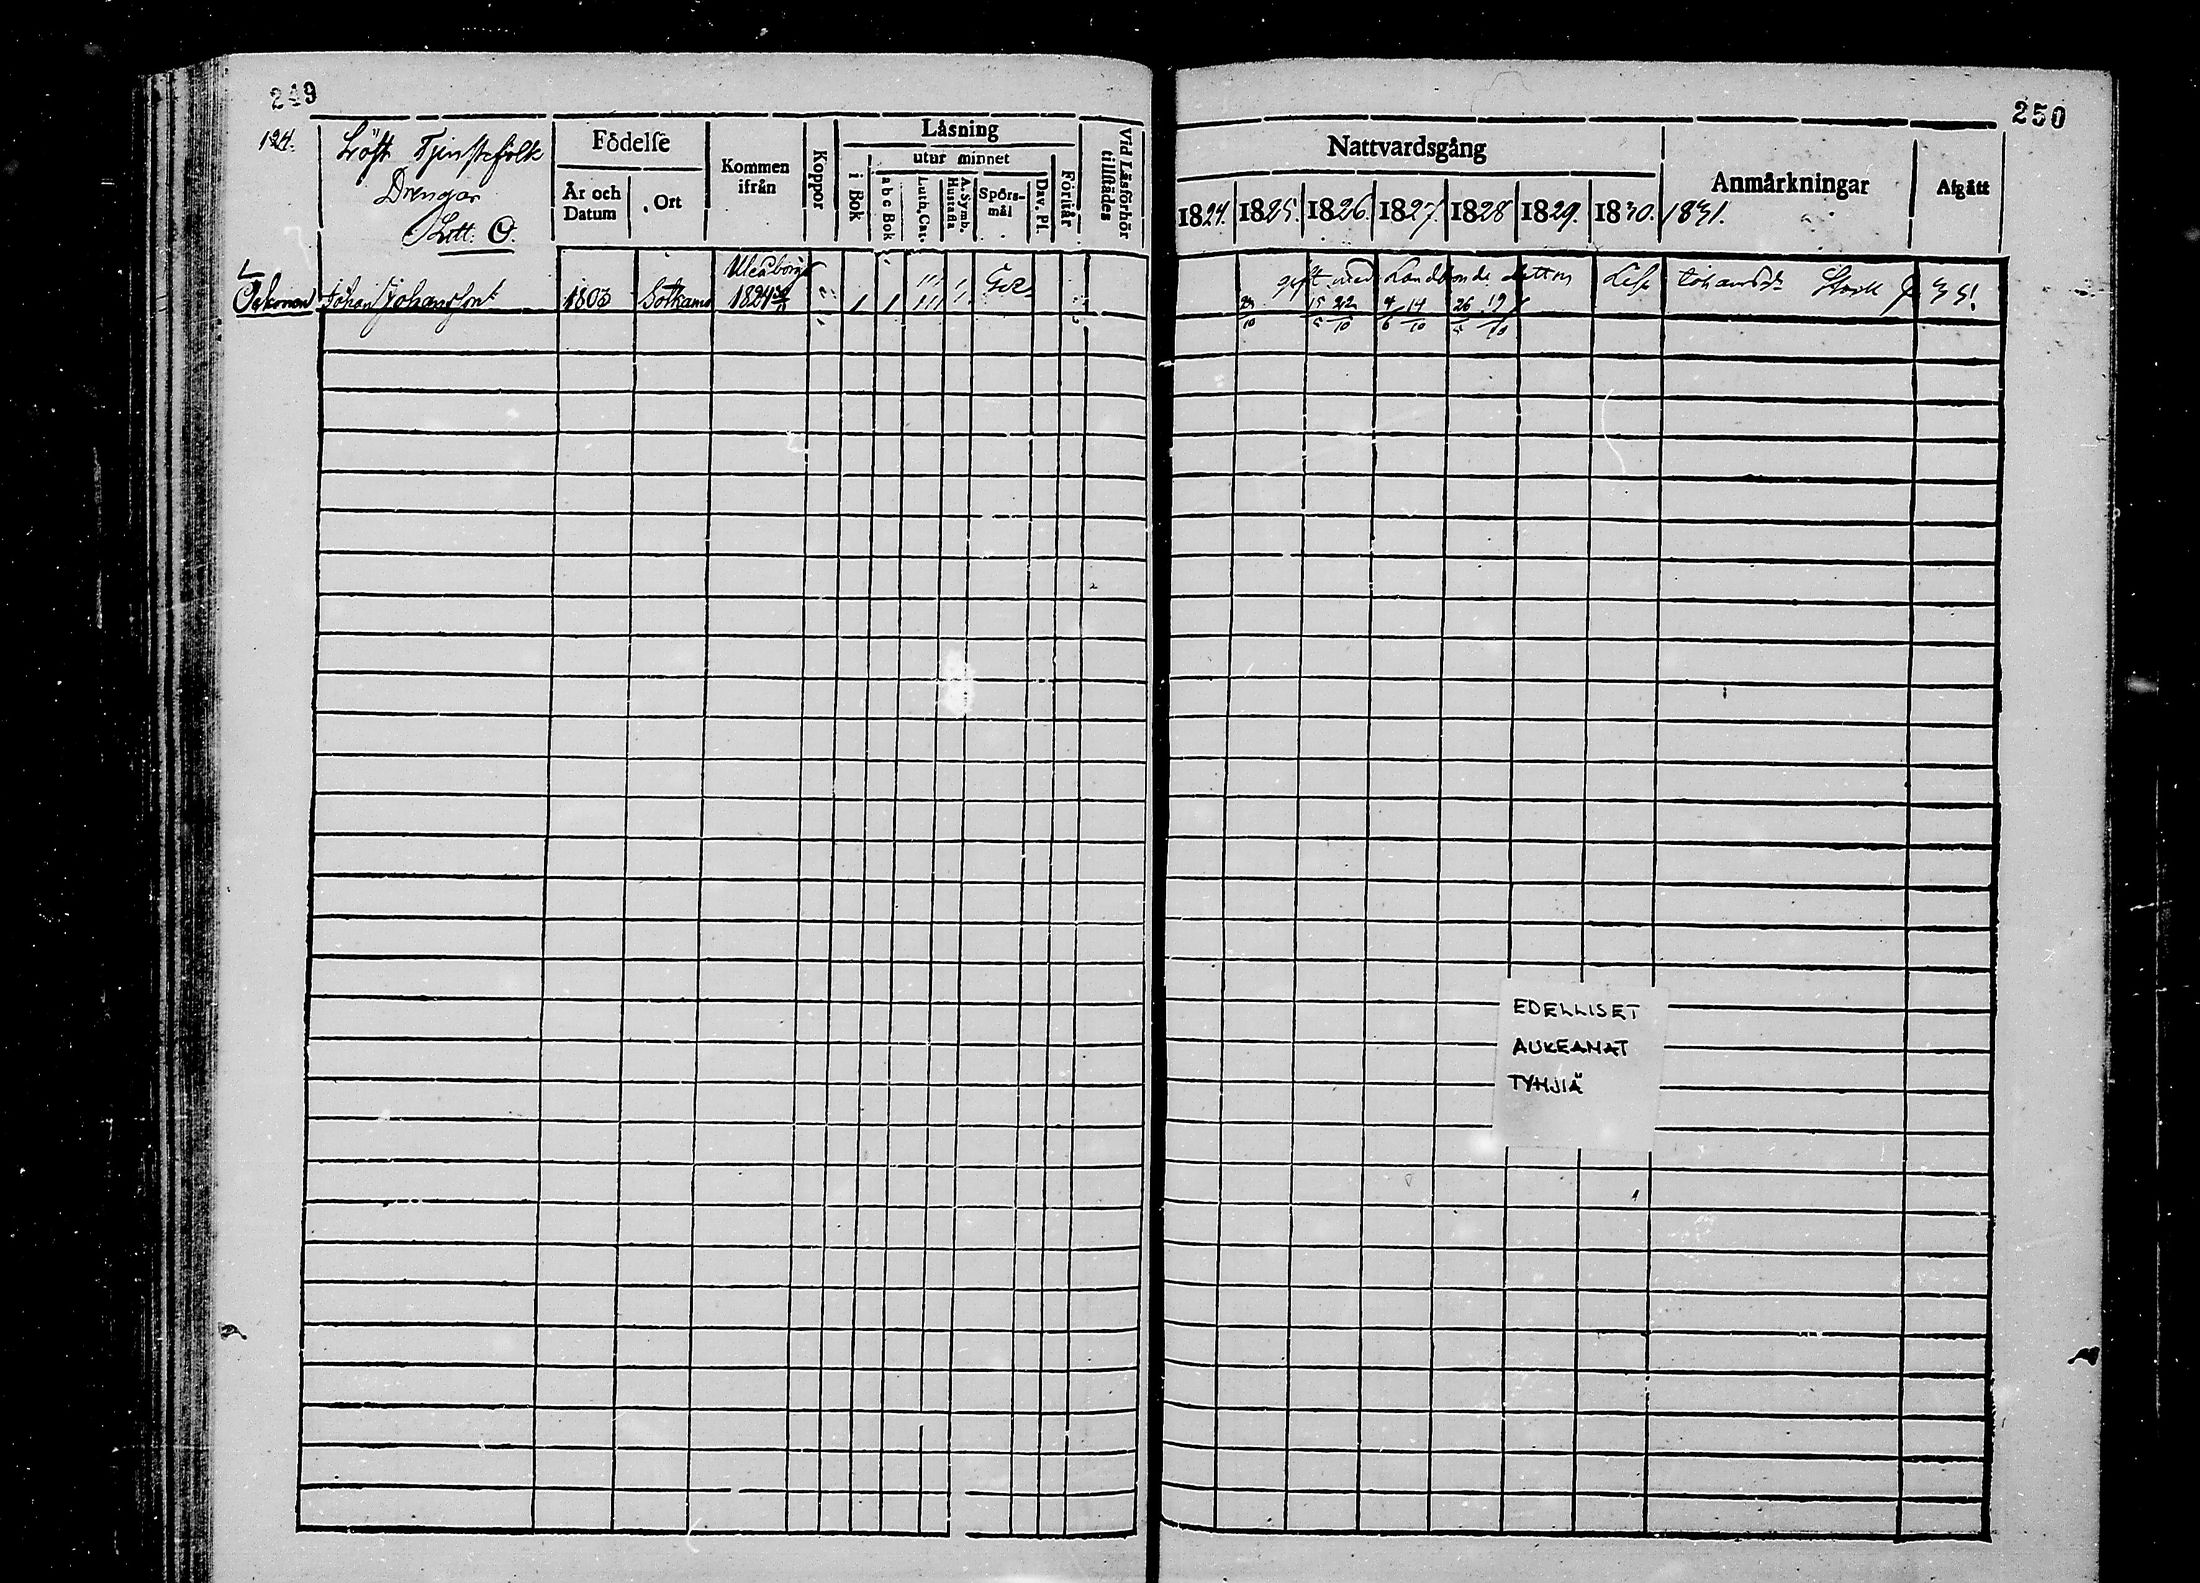 249
124.
Löst Tjenstefolk
Drengar
Litt. O.
Födelse
År och Datum
Ort
Kommen ifrån
Koppor
Läsning
utur minnet
i Bok
abc Bok
Luth. Cat.
A. Symb. Hustafla
Spörs-mål
Dav. Pf.
Förstår
Vid Läsförhör tillstädes
Uleåborg
Johan Johansson 1803 Sotkamo 1824
250
Nattvardsgång
Anmärkningar
Afgått
1824. 1825. 1826. 1827. 1828 1829. 1830. 1831.
gift med Landbonde dottren Lisa Johansdr
23/10 15/5 22/10 4/6 14/10 26/5 19/10
EDELLISET
AUKEAMAT
TYHJIÄ